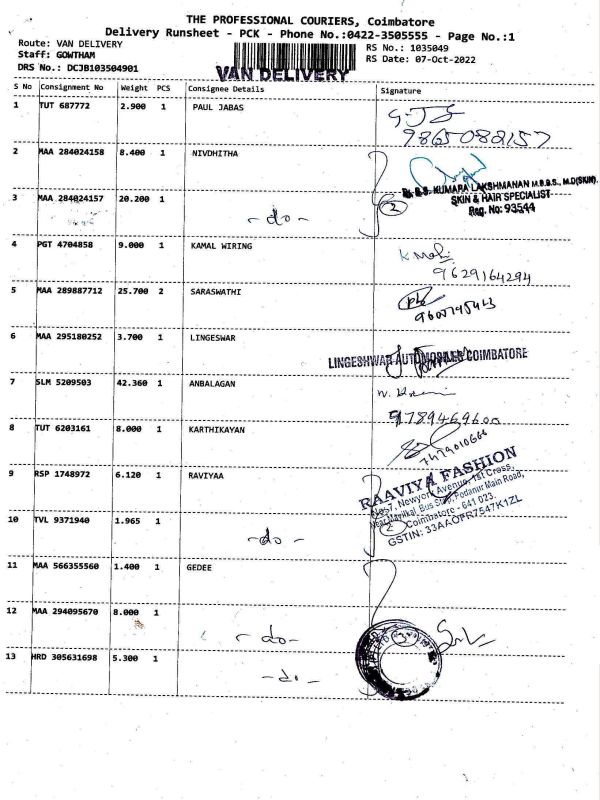 THE PROFESSIONAL COURIERS, Coimbatore
Delivery Runsheet - PCK - Phone No.:0422-3505555 - Page No.:1
Route: VAN DELIVERY RS No.: 1035049
Staff: GOWTHAM RS Date: 07-Oct-2022
DRS No.: DCJB103504901
VAN DELIVERY
S No Consignment No Weight PCS Consignee Details Signature
1 TUT 687772 2.900 1 PAUL JABAS
9865082157
2 MAA 284024158 8.400 1 NIVDHITHA
Dr. B.S. KUMARA LAKSHMANAN M.B.B.S., M.D(SKIN).
SKIN & HAIR SPECIALIST
Reg. No: 93544
3 MAA 284024157 20.200 1 -do- 2
4 PGT 4704858 9.000 1 KAMAL WIRING
9629164294
5 MAA 289887712 25.700 2 SARASWATHI
6 MAA 295180252 3.700 1 LINGESWAR
LINGESHWAR AUTOMOBILES COIMBATORE
7 SLM 5209503 42.360 1 ANBALAGAN
9789469600
8 TUT 6203161 8.000 1 KARTHIKAYAN
7479010666
9 RSP 1748972 6.120 1 RAVIYAA
RAAVIYA FASHION
Newyork Avenue, 1st Cross,
Bus Stop, Podanur Main Road,
Coimbatore - 641 023.
GSTIN: 33AAOFR7547K1ZL
10 TVL 9371940 1.965 1 -do- 2
11 MAA 566355560 1.400 1 GEDEE
12 MAA 294095670 8.000 1 -do- 3
13 HRD 305631698 5.300 1 -do-